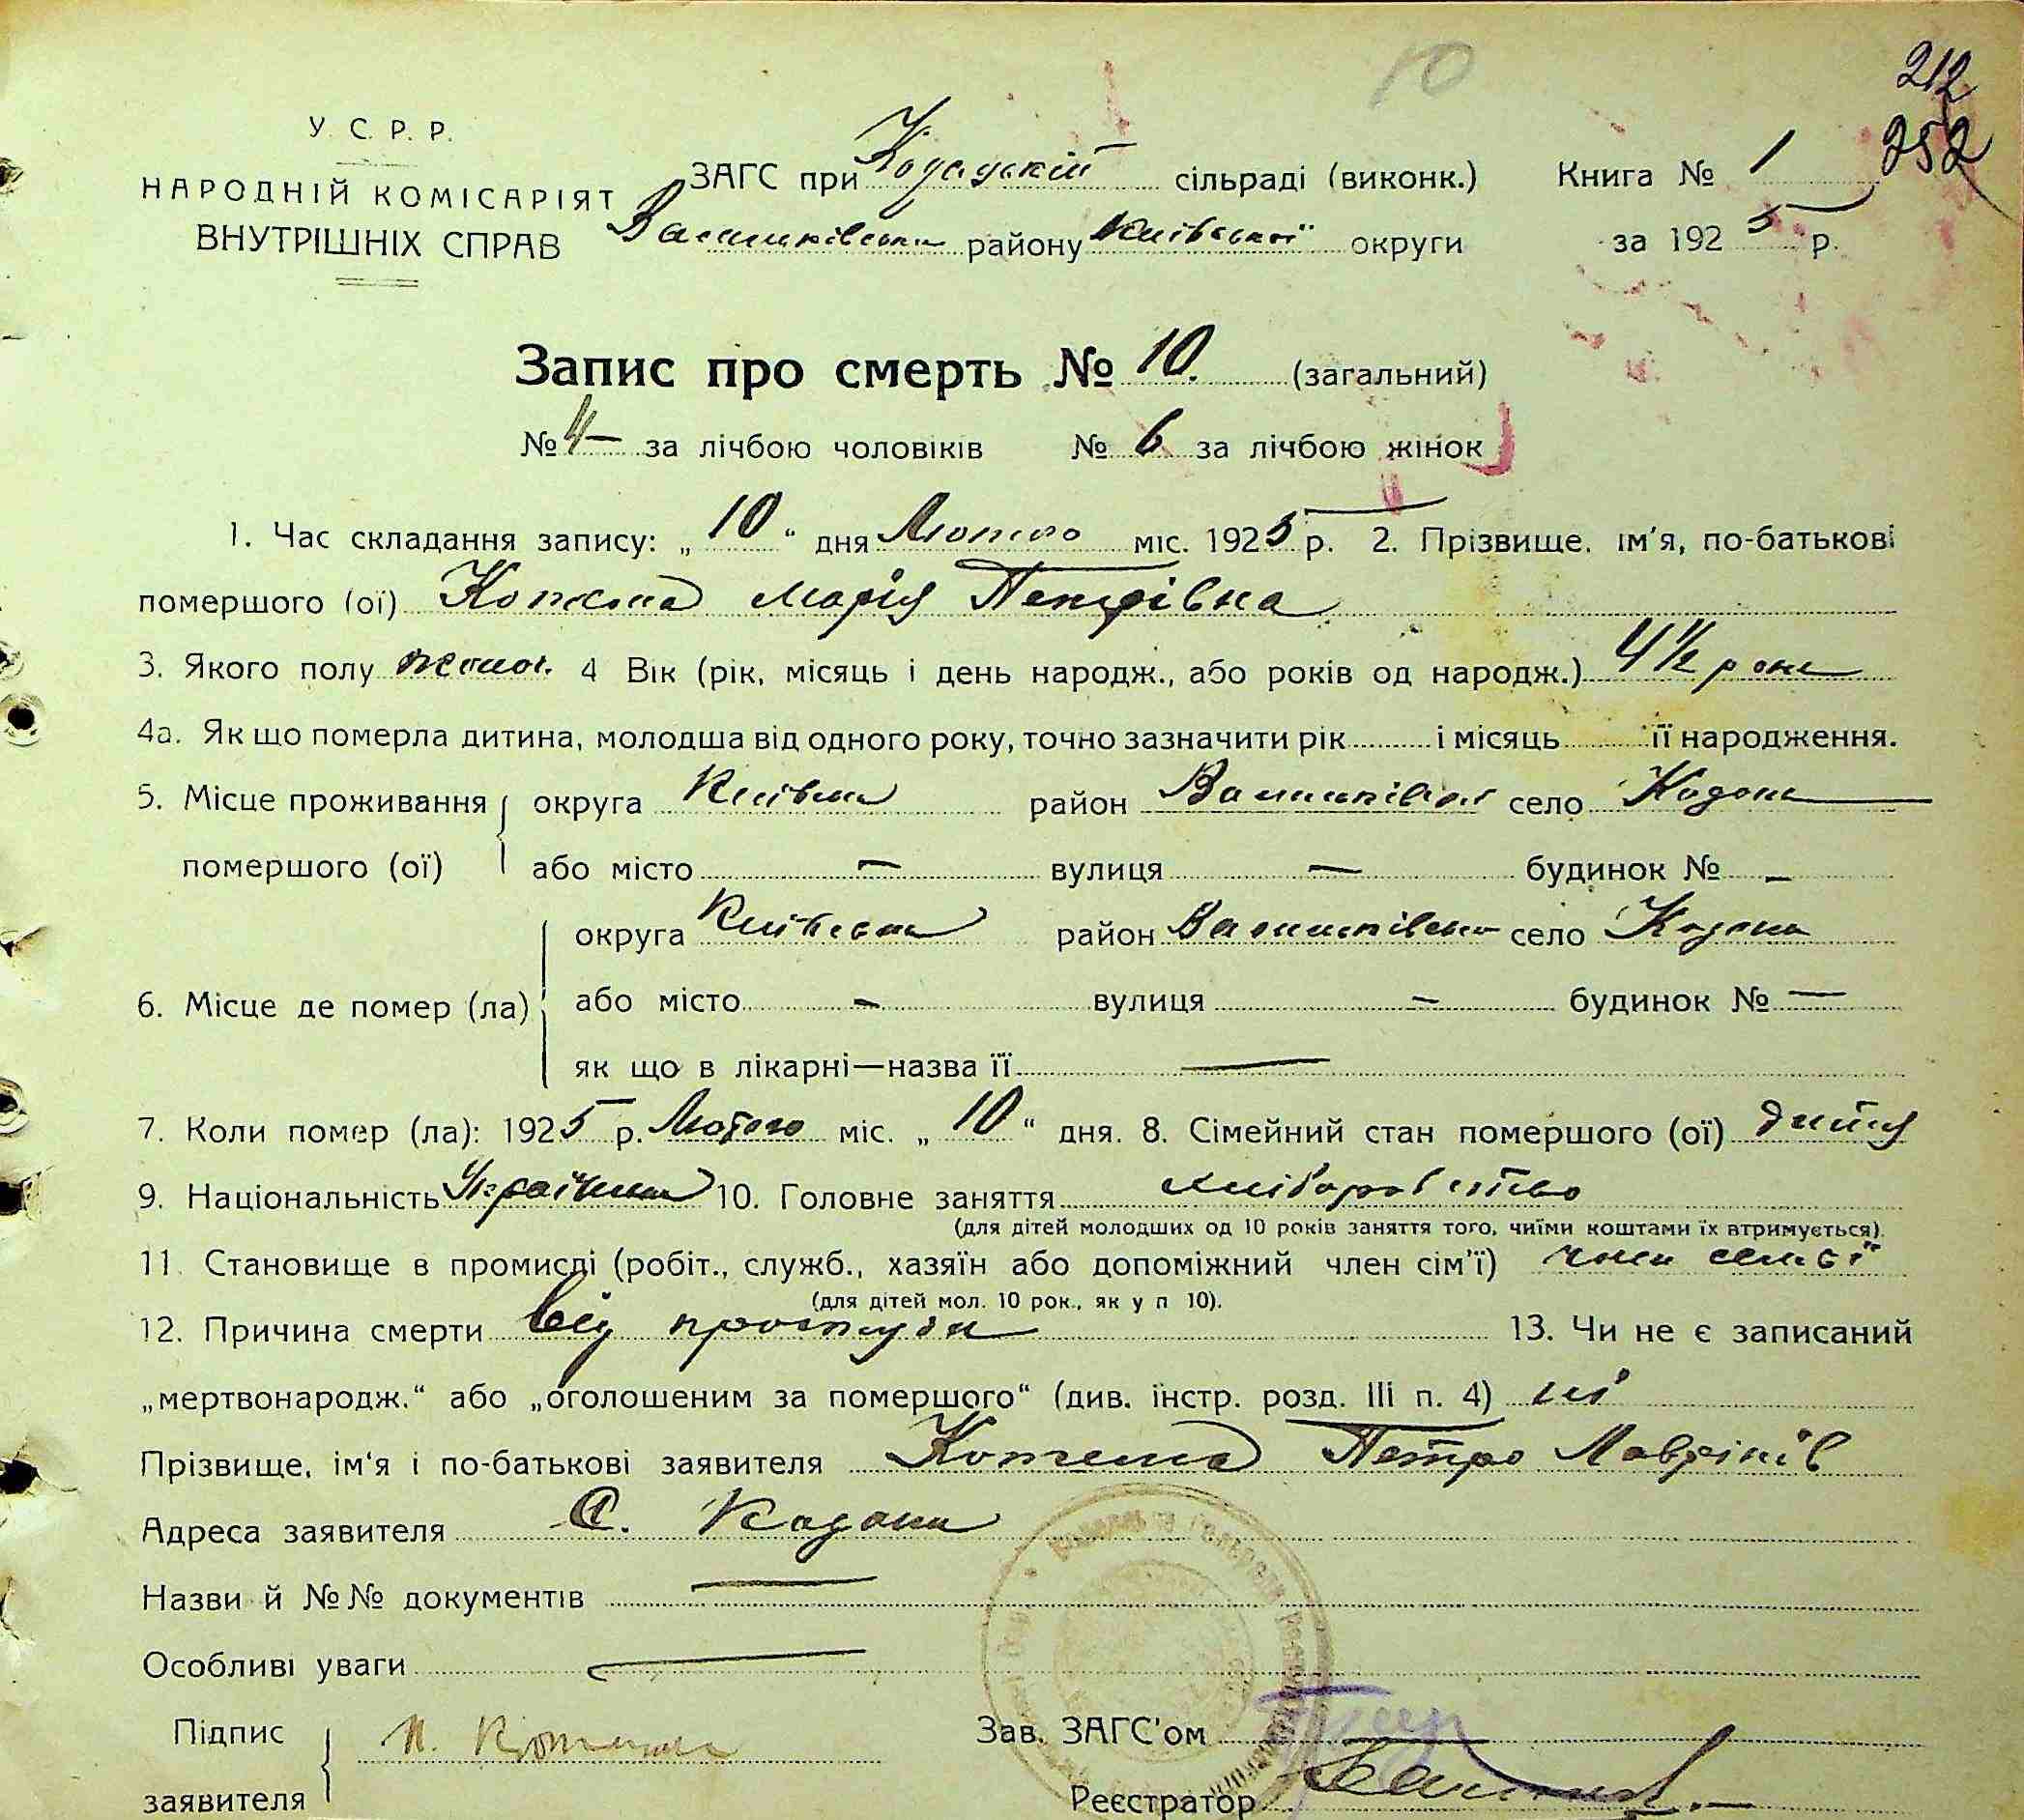 10
212
252
У. С. Р. Р.
НАРОДНІЙ КОМІСАРІЯТ
ВНУТРІШНІХ СПРАВ
ЗАГС при сільраді (виконк.)
району Київської округи
Книга № 1
за 1925 р.
Запис про смерть № 10. (загальний)
№ 4 — за лічбою чоловіків № 6 за лічбою жінок
1. Час складання запису: „10“ дня Лютого міс. 1925 р. 2. Прізвище, ім'я, по-батькові
помершого (ої) Марія Петрівна
3. Якого полу 4 Вік (рік, місяць і день народж., або років од народж.) 4 ½ роки
4а. Як що померла дитина, молодша від одного року, точно зазначити рік і місяць її народження.
5. Місце проживання округа Київська район село Кодаки
помершого (ої) або місто — вулиця — будинок № —
округа Київська район село Кодаки
6. Місце де помер (ла) або місто — вулиця — будинок № —
як що в лікарні—назва її —
7. Коли помер (ла): 1925 р. Лютого міс. „10“ дня. 8. Сімейний стан помершого (ої) дитя
9. Національність Українка 10. Головне заняття хліборобство
(для дітей молодших од 10 років заняття того, чиїми коштами їх втримується).
11. Становище в промислі (робіт., служб., хазяїн або допоміжний член сім'ї) член семьї
(для дітей мол. 10 рок., як у п 10).
12. Причина смерти від простуди 13. Чи не є записаний
„мертвонародж.“ або „оголошеним за помершого“ (див. інстр. розд. III п. 4) ні
Прізвище, ім'я і по-батькові заявителя Петро
Адреса заявителя С. Кодаки
Назви й №№ документів —
Особливі уваги —
Підпис
заявителя
Зав. ЗАГС'ом
Реєстратор